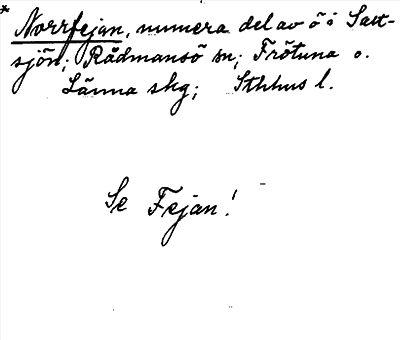 * Norrfejan, numera del av ö i Salt-
sjön; Rådmansö sn; Frötuna o.
Länna skg; Sthlms l.
Se Fejan!